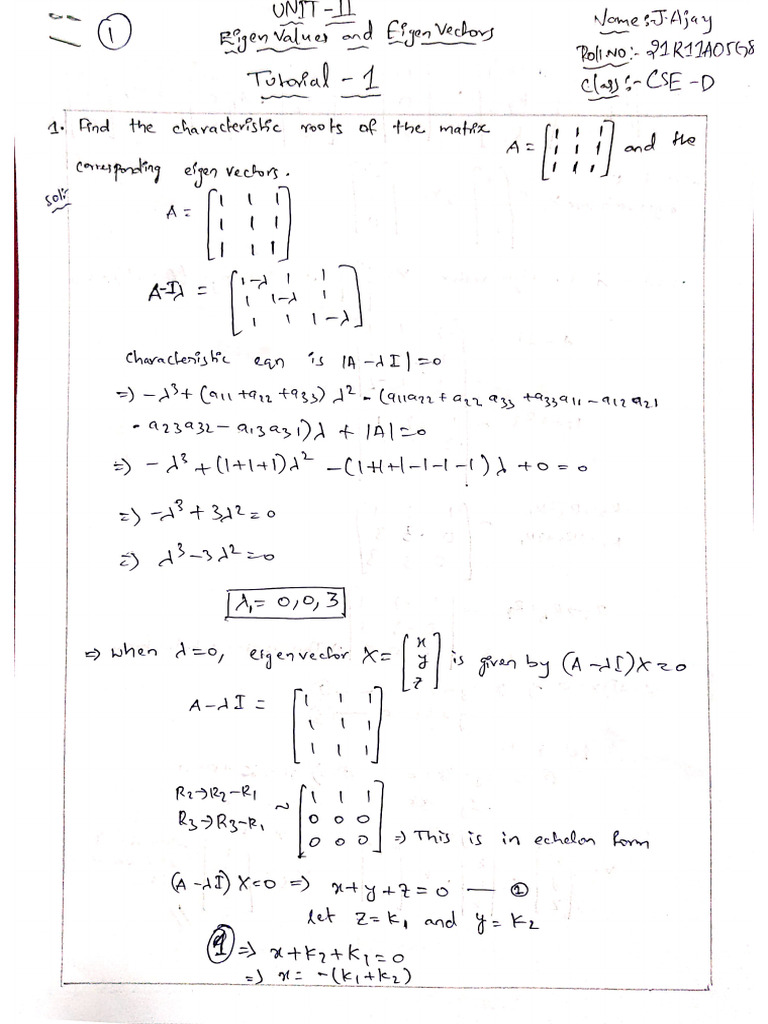 1
UNIT-II
Eigen Values and Eigen Vectors
Tutorial - 1
Name:- J. Ajay
Roll NO:- 21R11A05G8
Class:- CSE-D
1. Find the characteristic roots of the matrix A = [1 1 1
1 1 1
1 1 1] and the
corresponding eigen vectors.
Sol:-
A = [1 1 1
1 1 1
1 1 1]
A-Iλ = [1-λ 1 1
1 1-λ 1
1 1 1-λ]
Characteristic eqn is |A-λI|=0
=> -λ³+(a11+a22+a33)λ² -(a11a22+a22 a33+a33a11-a12a21
-a23a32-a13a31)λ+|A|=0
=> -λ³+(1+1+1)λ² -(1+1+1-1-1-1)λ+0=0
=> -λ³+3λ²=0
=> λ³-3λ²=0
λ,= 0,0,3
=> when λ=0, eigen vector X= [x
y
z] is given by (A-λI)X=0
A-λI = [1 1 1
1 1 1
1 1 1]
R2→R2-R1
R3→R3-R1
~ [1 1 1
0 0 0
0 0 0] => This is in echelon form
(A-λI)X=0 => x+y+z=0 — ①
let z=k₁ and y=k₂
① => x+k₂+k₁=0
=> x= -(k₁+k₂)